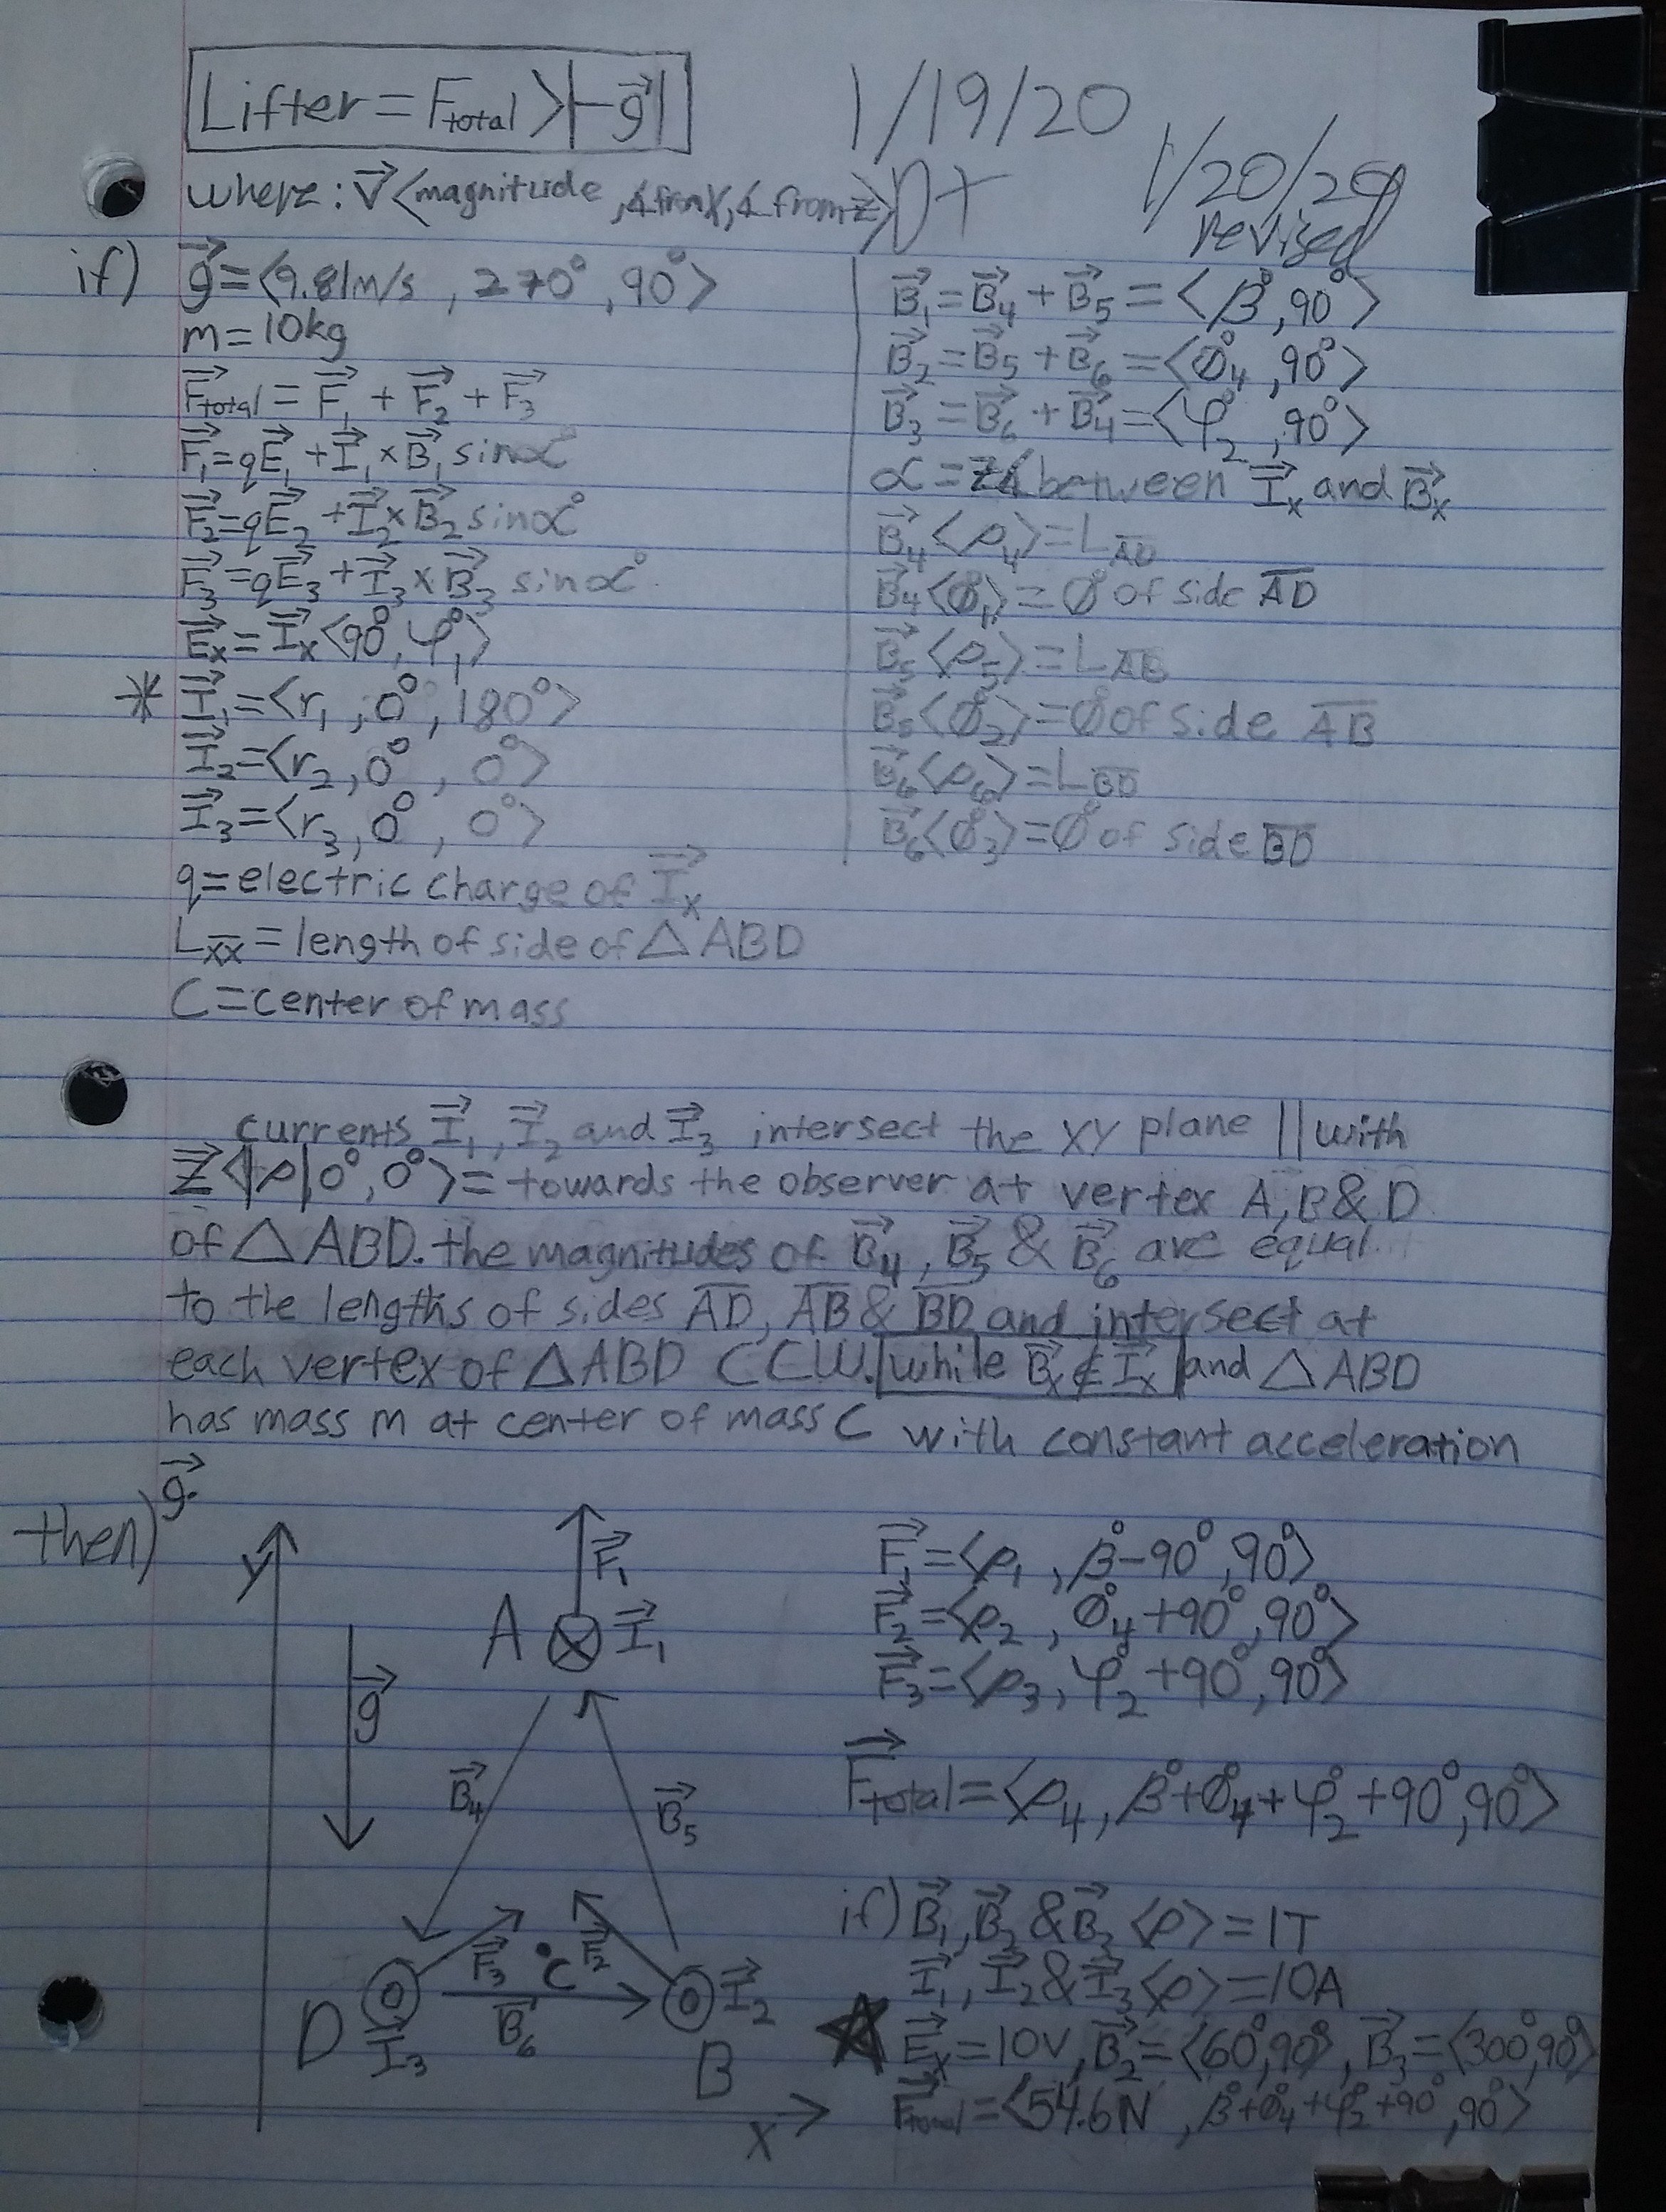 Lifter = F_total > |-g⃗|
1/19/20
1/20/20
revised
where: V⃗<magnitude, ∠ from X, ∠ from z>
DT
if) g⃗ = <9.81m/s, 270°, 90°>
m = 10kg
F⃗_total = F⃗₁ + F⃗₂ + F⃗₃
F⃗₁ = qE⃗₁ + I⃗₁ × B⃗₁ sin∝°
F⃗₂ = qE⃗₂ + I⃗₂ × B⃗₂ sin∝°
F⃗₃ = qE⃗₃ + I⃗₃ × B⃗₃ sin∝°
E⃗x = I⃗x <90°, φ₁°>
* I⃗₁ = <r₁, 0°, 180°>
I⃗₂ = <r₂, 0°, 0°>
I⃗₃ = <r₃, 0°, 0°>
q = electric charge of I⃗x
L_XX = length of side of △ABD
C = center of mass
B⃗₁ = B⃗₄ + B⃗₅ = <β°, 90°>
B⃗₂ = B⃗₅ + B⃗₆ = <Ø₄°, 90°>
B⃗₃ = B⃗₆ + B⃗₄ = <φ₂°, 90°>
∝ = ∠ between I⃗x and B⃗x
B⃗₄<ρ₄> = L_AD
B⃗₄<Ø₁°> = Ø° of side AD
B⃗₅<ρ₅> = L_AB
B⃗₅<Ø₂°> = Ø° of side AB
B⃗₆<ρ₆> = L_BD
B⃗₆<Ø₃°> = Ø° of side BD
currents I⃗₁, I⃗₂ and I⃗₃ intersect the XY plane || with
Z⃗<|ρ|, 0°, 0°> = towards the observer at vertex A, B & D
of △ABD. the magnitudes of B⃗₄, B⃗₅ & B⃗₆ are equal
to the lengths of sides AD, AB & BD and intersect at
each vertex of △ABD CCW. while B⃗x ∉ I⃗x and △ABD
has mass m at center of mass C with constant acceleration
g⃗.
then)
y
g⃗
F⃗₁
A
I⃗₁
B⃗₄
B⃗₅
F⃗₃
C
F⃗₂
D
I⃗₃
B⃗₆
I⃗₂
B
x
F⃗₁ = <ρ₁, β°-90°, 90°>
F⃗₂ = <ρ₂, Ø₄°+90°, 90°>
F⃗₃ = <ρ₃, φ₂°+90°, 90°>
F⃗_total = <ρ₄, β°+Ø₄°+φ₂°+90°, 90°>
if) B⃗₁, B⃗₂ & B⃗₃ <ρ> = 1T
I⃗₁, I⃗₂ & I⃗₃ <ρ> = 10A
E⃗x = 10V, B⃗₂ = <60°, 90°>, B⃗₃ = <300°, 90°>
F⃗_total = <54.6N, β°+Ø₄°+φ₂°+90°, 90°>